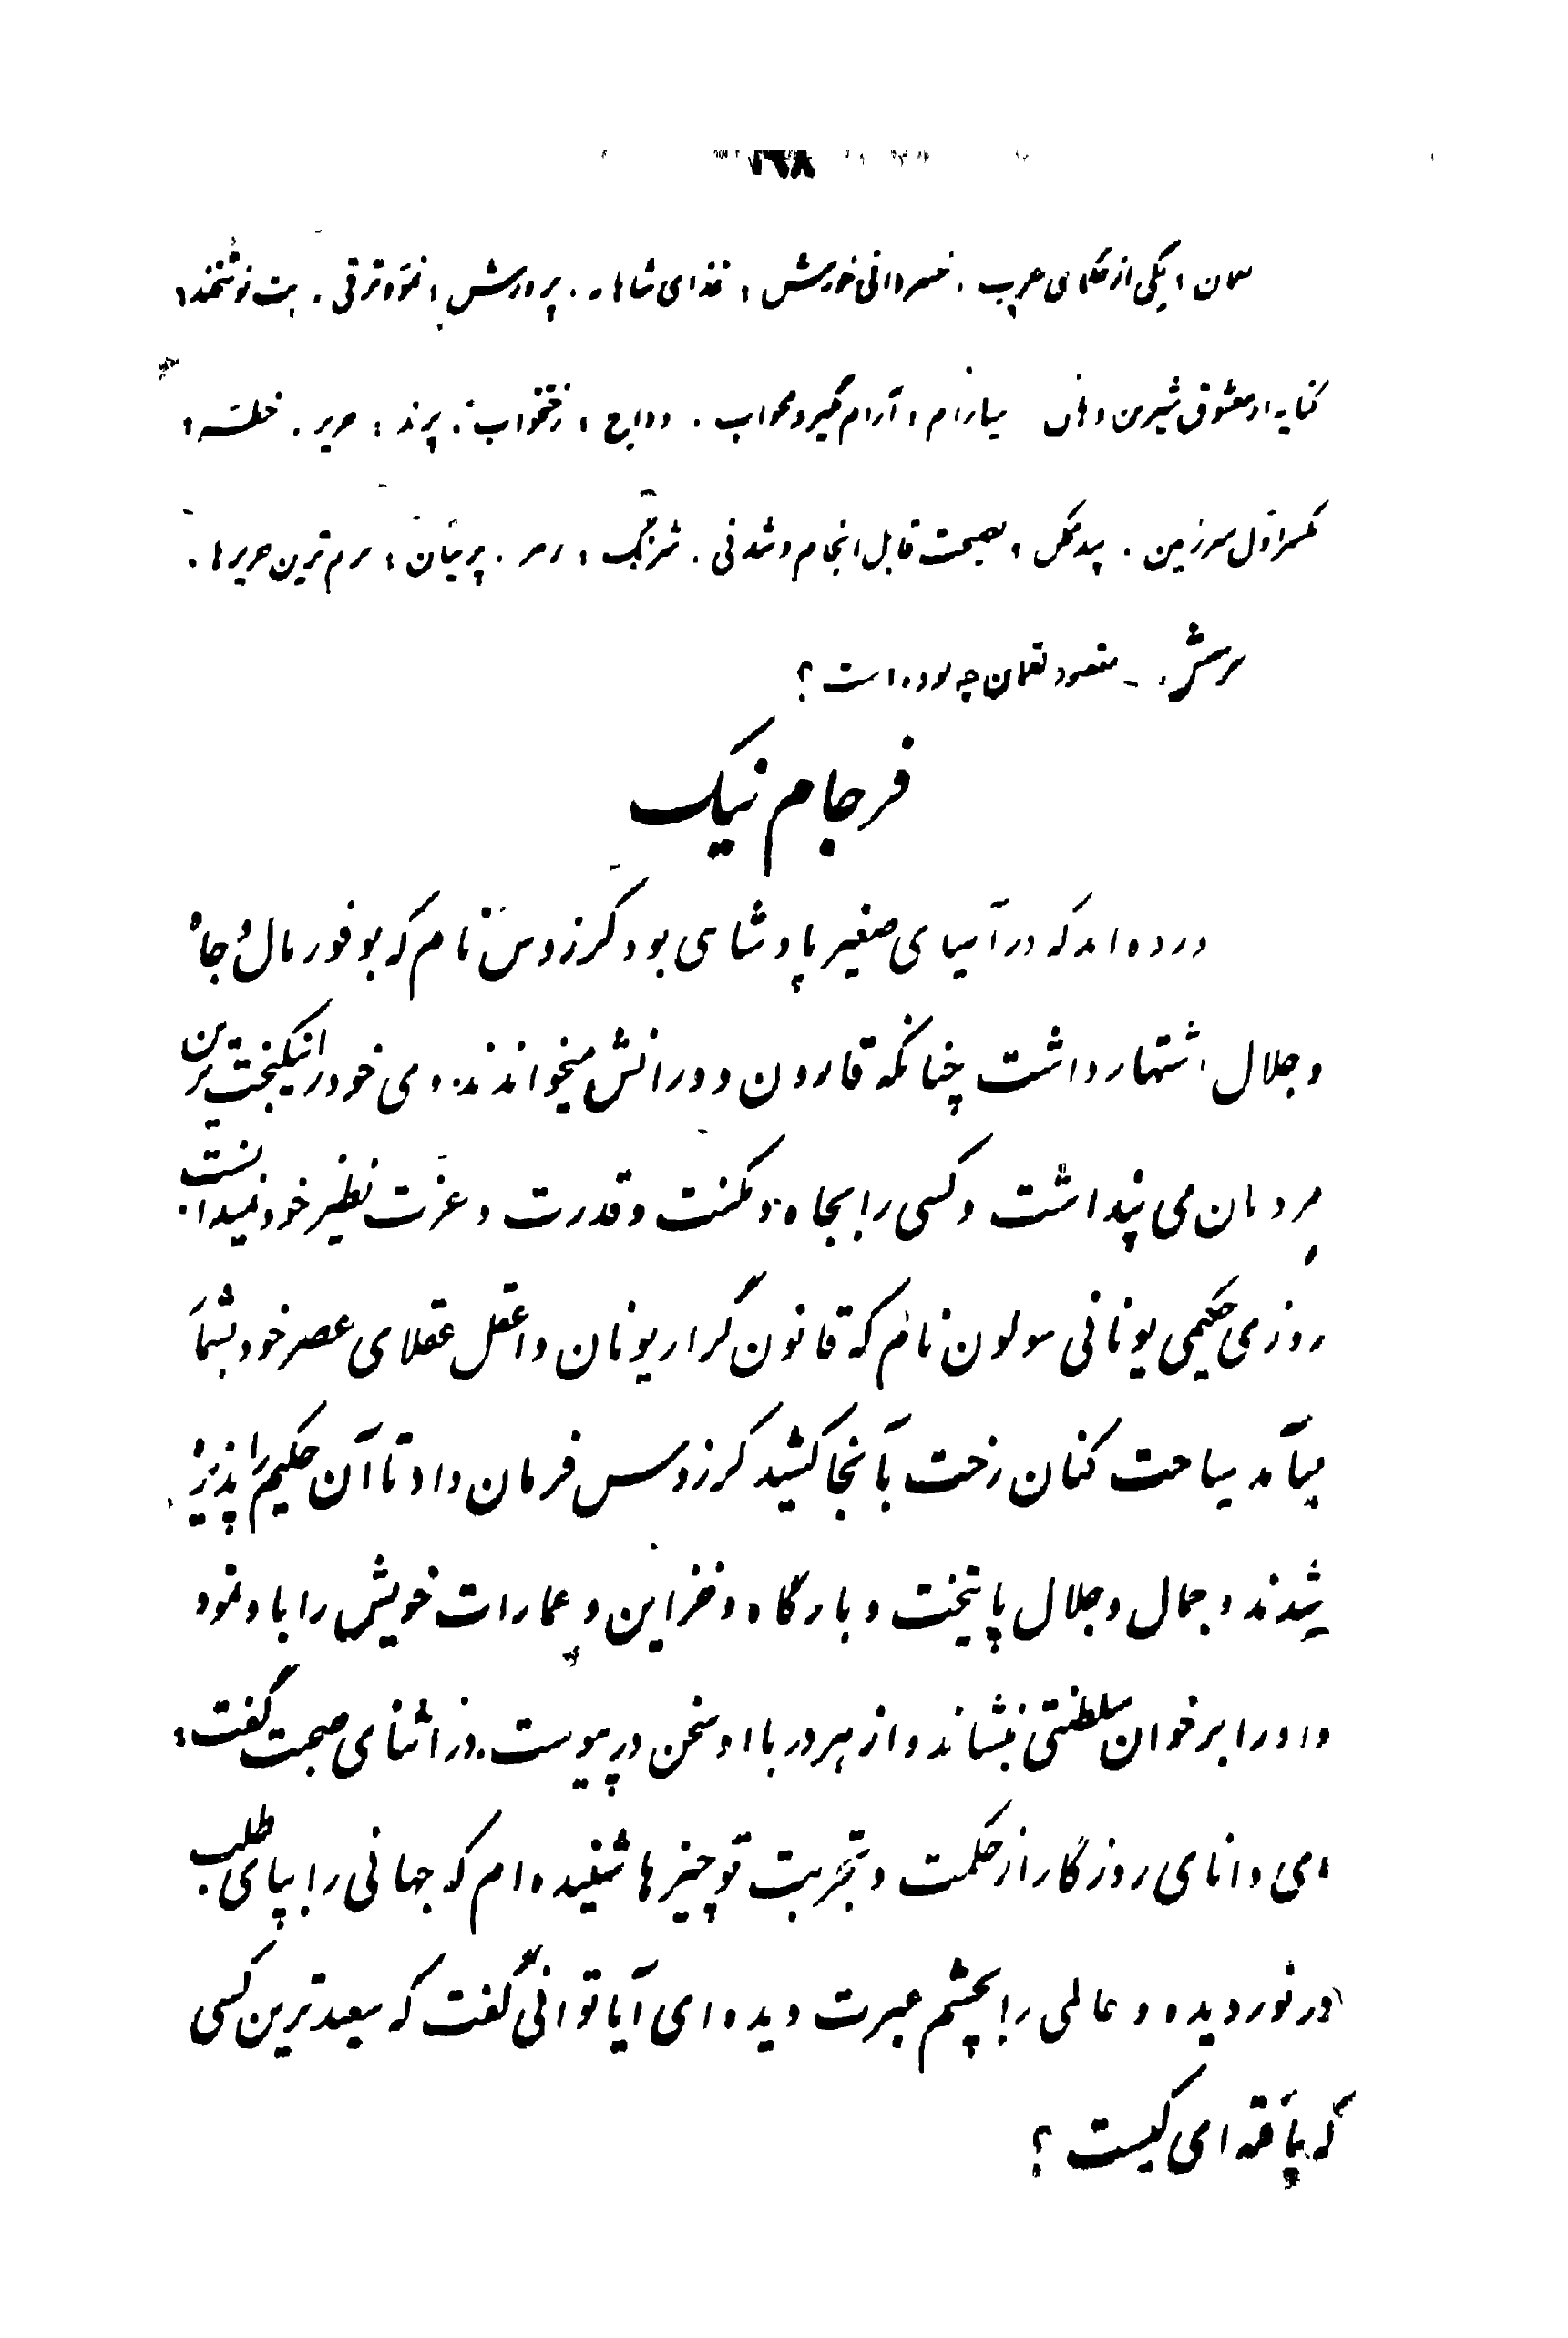 ۱۹۸
لقمان ، یکی از حکمای عرب . خسروانی خورش ، غذای شاهانه . پرورش ، نمو و ترقی . بت نوشخند ،
کنایه از معشوق شیرین دهان بیارام ، آرام گیر و بخواب . دواج ، رختخواب . پرند ، حریر .
سرزمین . نصیحت قابل انجام و شدنی . شرنگ ، زهر . پرنیان ، نرم ترین حریرها .
پرسش . ـ مقصود لقمان چه بوده است ؟
فرجام نیک
آورده‌اند که در آسیای صغیر پادشاهی بود کرزوس نام که بوفور مال و جاه
و جلال اشتهار داشت چنانکه قارون دورانش میخواندند. وی خود را نیکبخت‌ترین
مردمان می پنداشت و کسی را بجاه و مکنت و قدرت و عزت نظیر خود نمیدانست.
روزی حکیمی یونانی سولون نام که قانون گزار یونان و اعقل عقلای عصر خود بشمار
میآمد سیاحت کنان رخت بآنجا کشید کرزوس فرمان داد تا آن حکیم را پذیره
شدند و جمال و جلال پایتخت و بارگاه و خزاین و عمارات خویش را باو نمود
و او را بر خوان سلطنتی بنشاند و از هر در با او سخن در پیوست. در اثنای صحبت گفت :
ای دانای روزگار از حکمت و تجربت تو چیزها شنیده‌ام که جهانی را بپای طلب
در نوردیده و عالمی را بچشم عبرت دیده‌ای آیا توانی گفت که سعیدترین کسی
که یافته‌ای کیست ؟